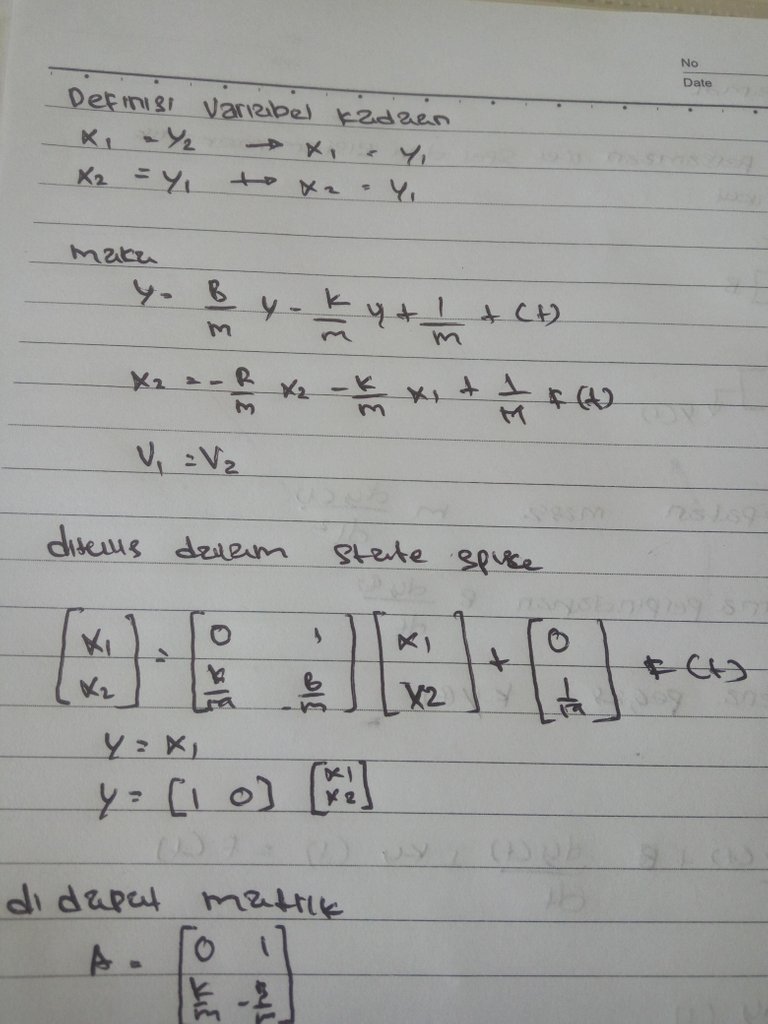 No
Date
Definisi Variabel Kadaan
x₁ = y₂ → x₁ = y₁
x₂ = y₁ → x₂ = y₁
maka
y = B/m y - K/m y + 1/m + (t)
x₂ = - B/m x₂ - K/m x₁ + 1/m F(t)
V₁ = V₂
ditulis dalam state space
[x₁ x₂] = [0 1 K/m -B/m] [x₁ x₂] + [0 1/m] F(t)
y = x₁
y = [1 0] [x1 x2]
di dapat matrik
A = [0 1 K/m -B/m]